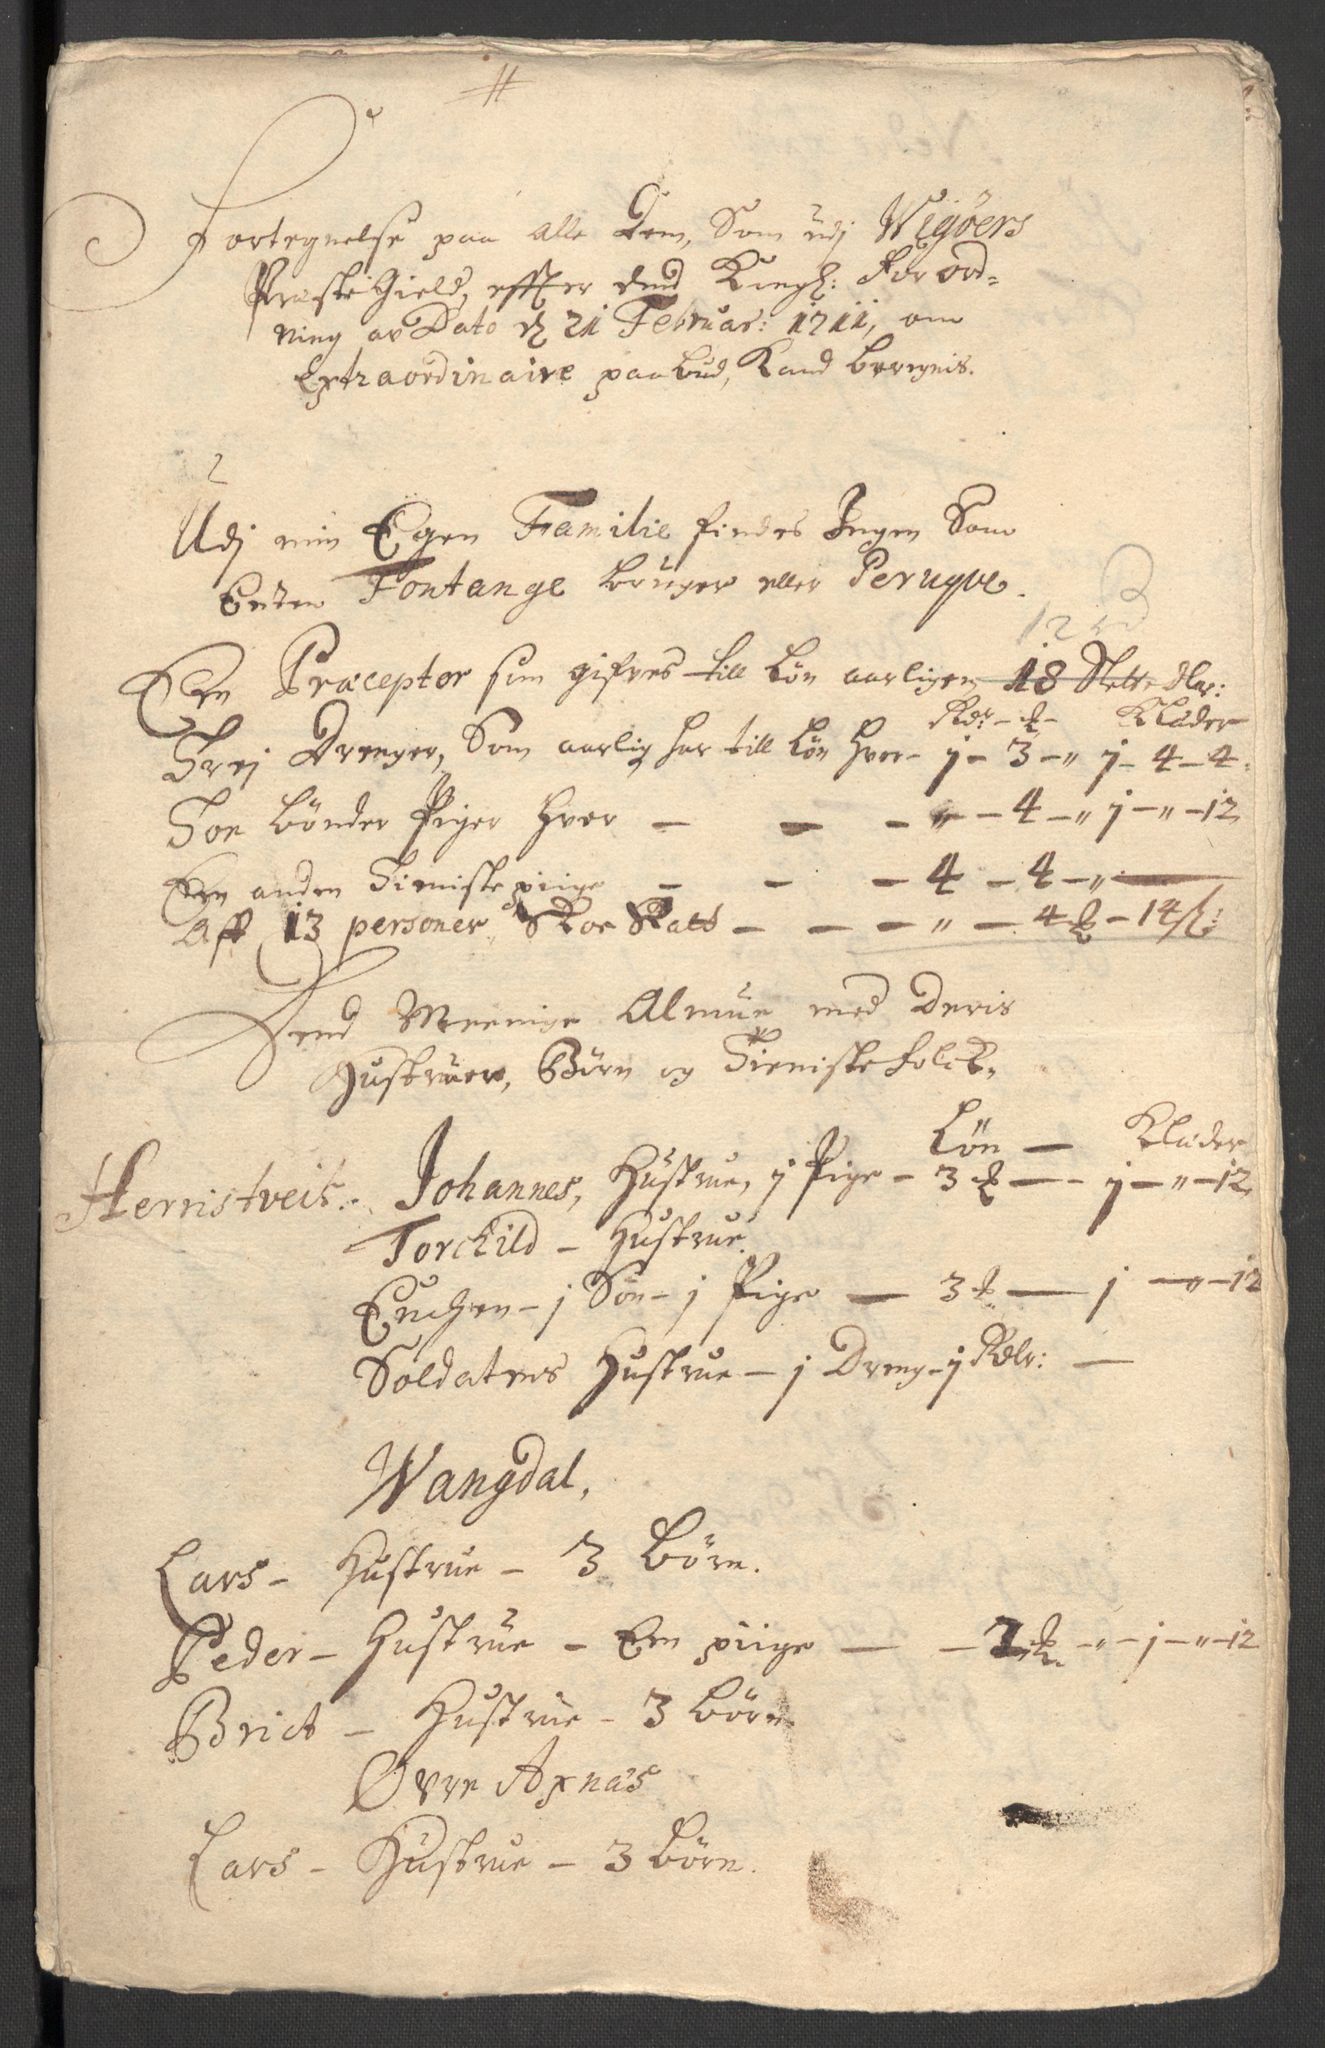 Fortegnelse paa alle Dem, Som udj Wigøers
Præste Gield, effter dend Kongl: Forord-
ning av Dato d 21 Februar: 1711, om
Extraordinaire paabud, Kand beregnis.
Udj min Egen Familie findes Ingen Som
Enten Fontange bruger eller Perugve.
Een Præceptor som gifves till løn aarligen 18 Slette dlr:
Rdr - Klæder
Trej Drenger, Som aarlig har till løn hver - j - 3 - " j - 4 - 4.
Toe bønder Piger hver - - - " - 4 - " j - " - 12
Een anden Tieniste piige - - - 4 - 4 - "
Aff 13 personer Skoe Skatt - - - " - 4 - 14 ß:
Dend Meenige Almue med Deris
Hustruer, Børn og Tienistefolck,
Løn - Klæder
Herristveit. Johannes, Hustrue, j Pige - 3 - j - " - 12
Torckild - Hustrue
Enchen - j Søn - j Pige - 3 - j - " - 12
Soldatens Hustrue - j Dreng - j Rdlr: -
Wangdal,
Lars - Hustrue - 3 Børn.
Peder - Hustrue - Een piige - - 2 - " - j - " - 12
Brict - Hustrue - 3 Børn
Øvre Axnæs
Lars - Hustrue - 3 Børn.